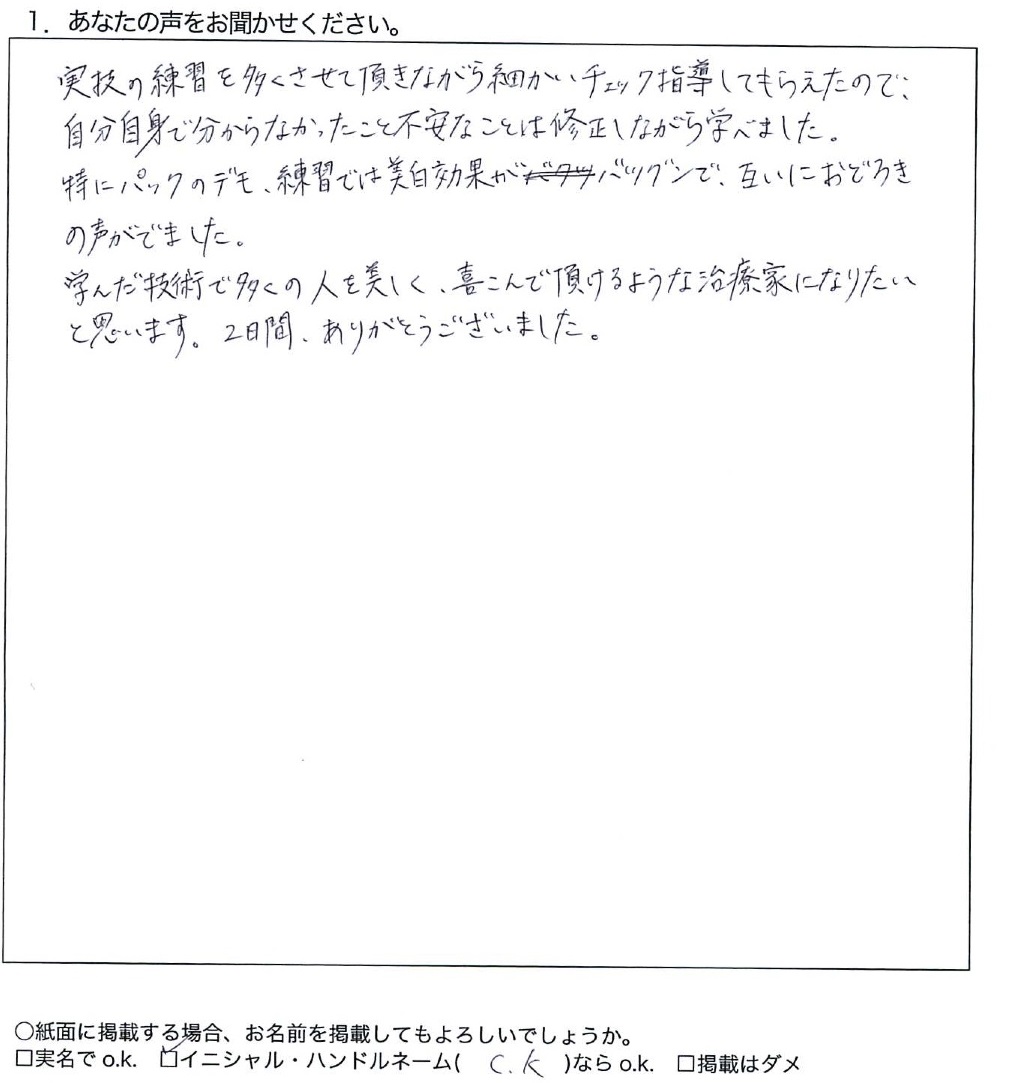 1. あなたの声をお聞かせください。
実技の練習を多くさせて頂きながら細かいチェック指導してもらえたので、
自分自身で分からなかったこと不安なことは修正しながら学べました。
特にパックのデモ、練習では美白効果がバツグンで、互いにおどろき
の声がでました。
学んだ技術で多くの人を美しく、喜こんで頂けるような治療家になりたい
と思います。2日間、ありがとうございました。
○紙面に掲載する場合、お名前を掲載してもよろしいでしょうか。
□実名で o.k. ☑イニシャル・ハンドルネーム( C.K )なら o.k. □掲載はダメ